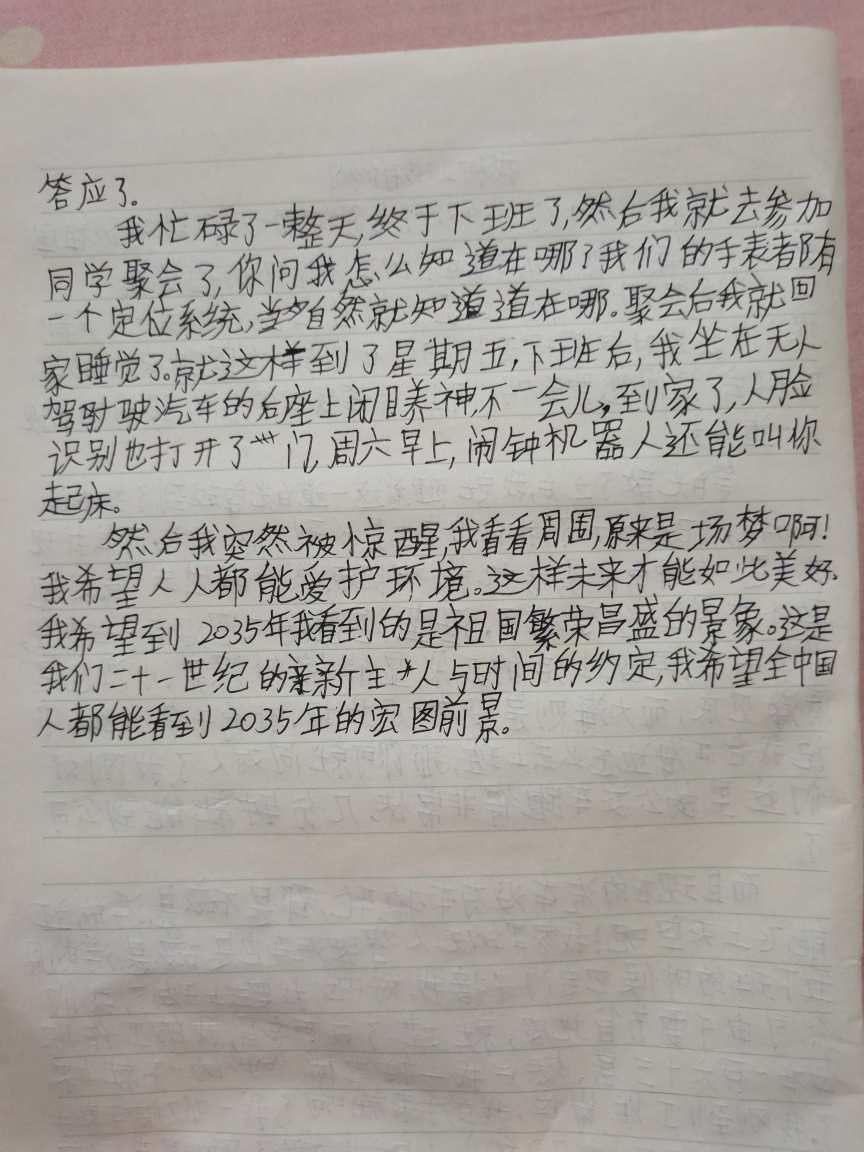 答应了。
我忙碌了一整天,终于下班了,然后我就去参加
同学聚会了,你问我怎么知道在哪?我们的手表都有
一个定位系统,当然就知道道在哪。聚会后我就回
家睡觉了。就这样到了星期五,下班后,我坐在无人
驾驶汽车的后座上闭目养神,不一会儿,到家了,人脸
识别也打开了门,周六早上,闹钟机器人还能叫你
起床。
然后我突然被惊醒,我看看周围,原来是场梦啊!
我希望人人都能爱护环境。这样未来才能如此美好.
我希望到2035年我看到的是祖国繁荣昌盛的景象。这是
我们二十一世纪的新主人与时间的约定,我希望全中国
人都能看到2035年的宏图前景。